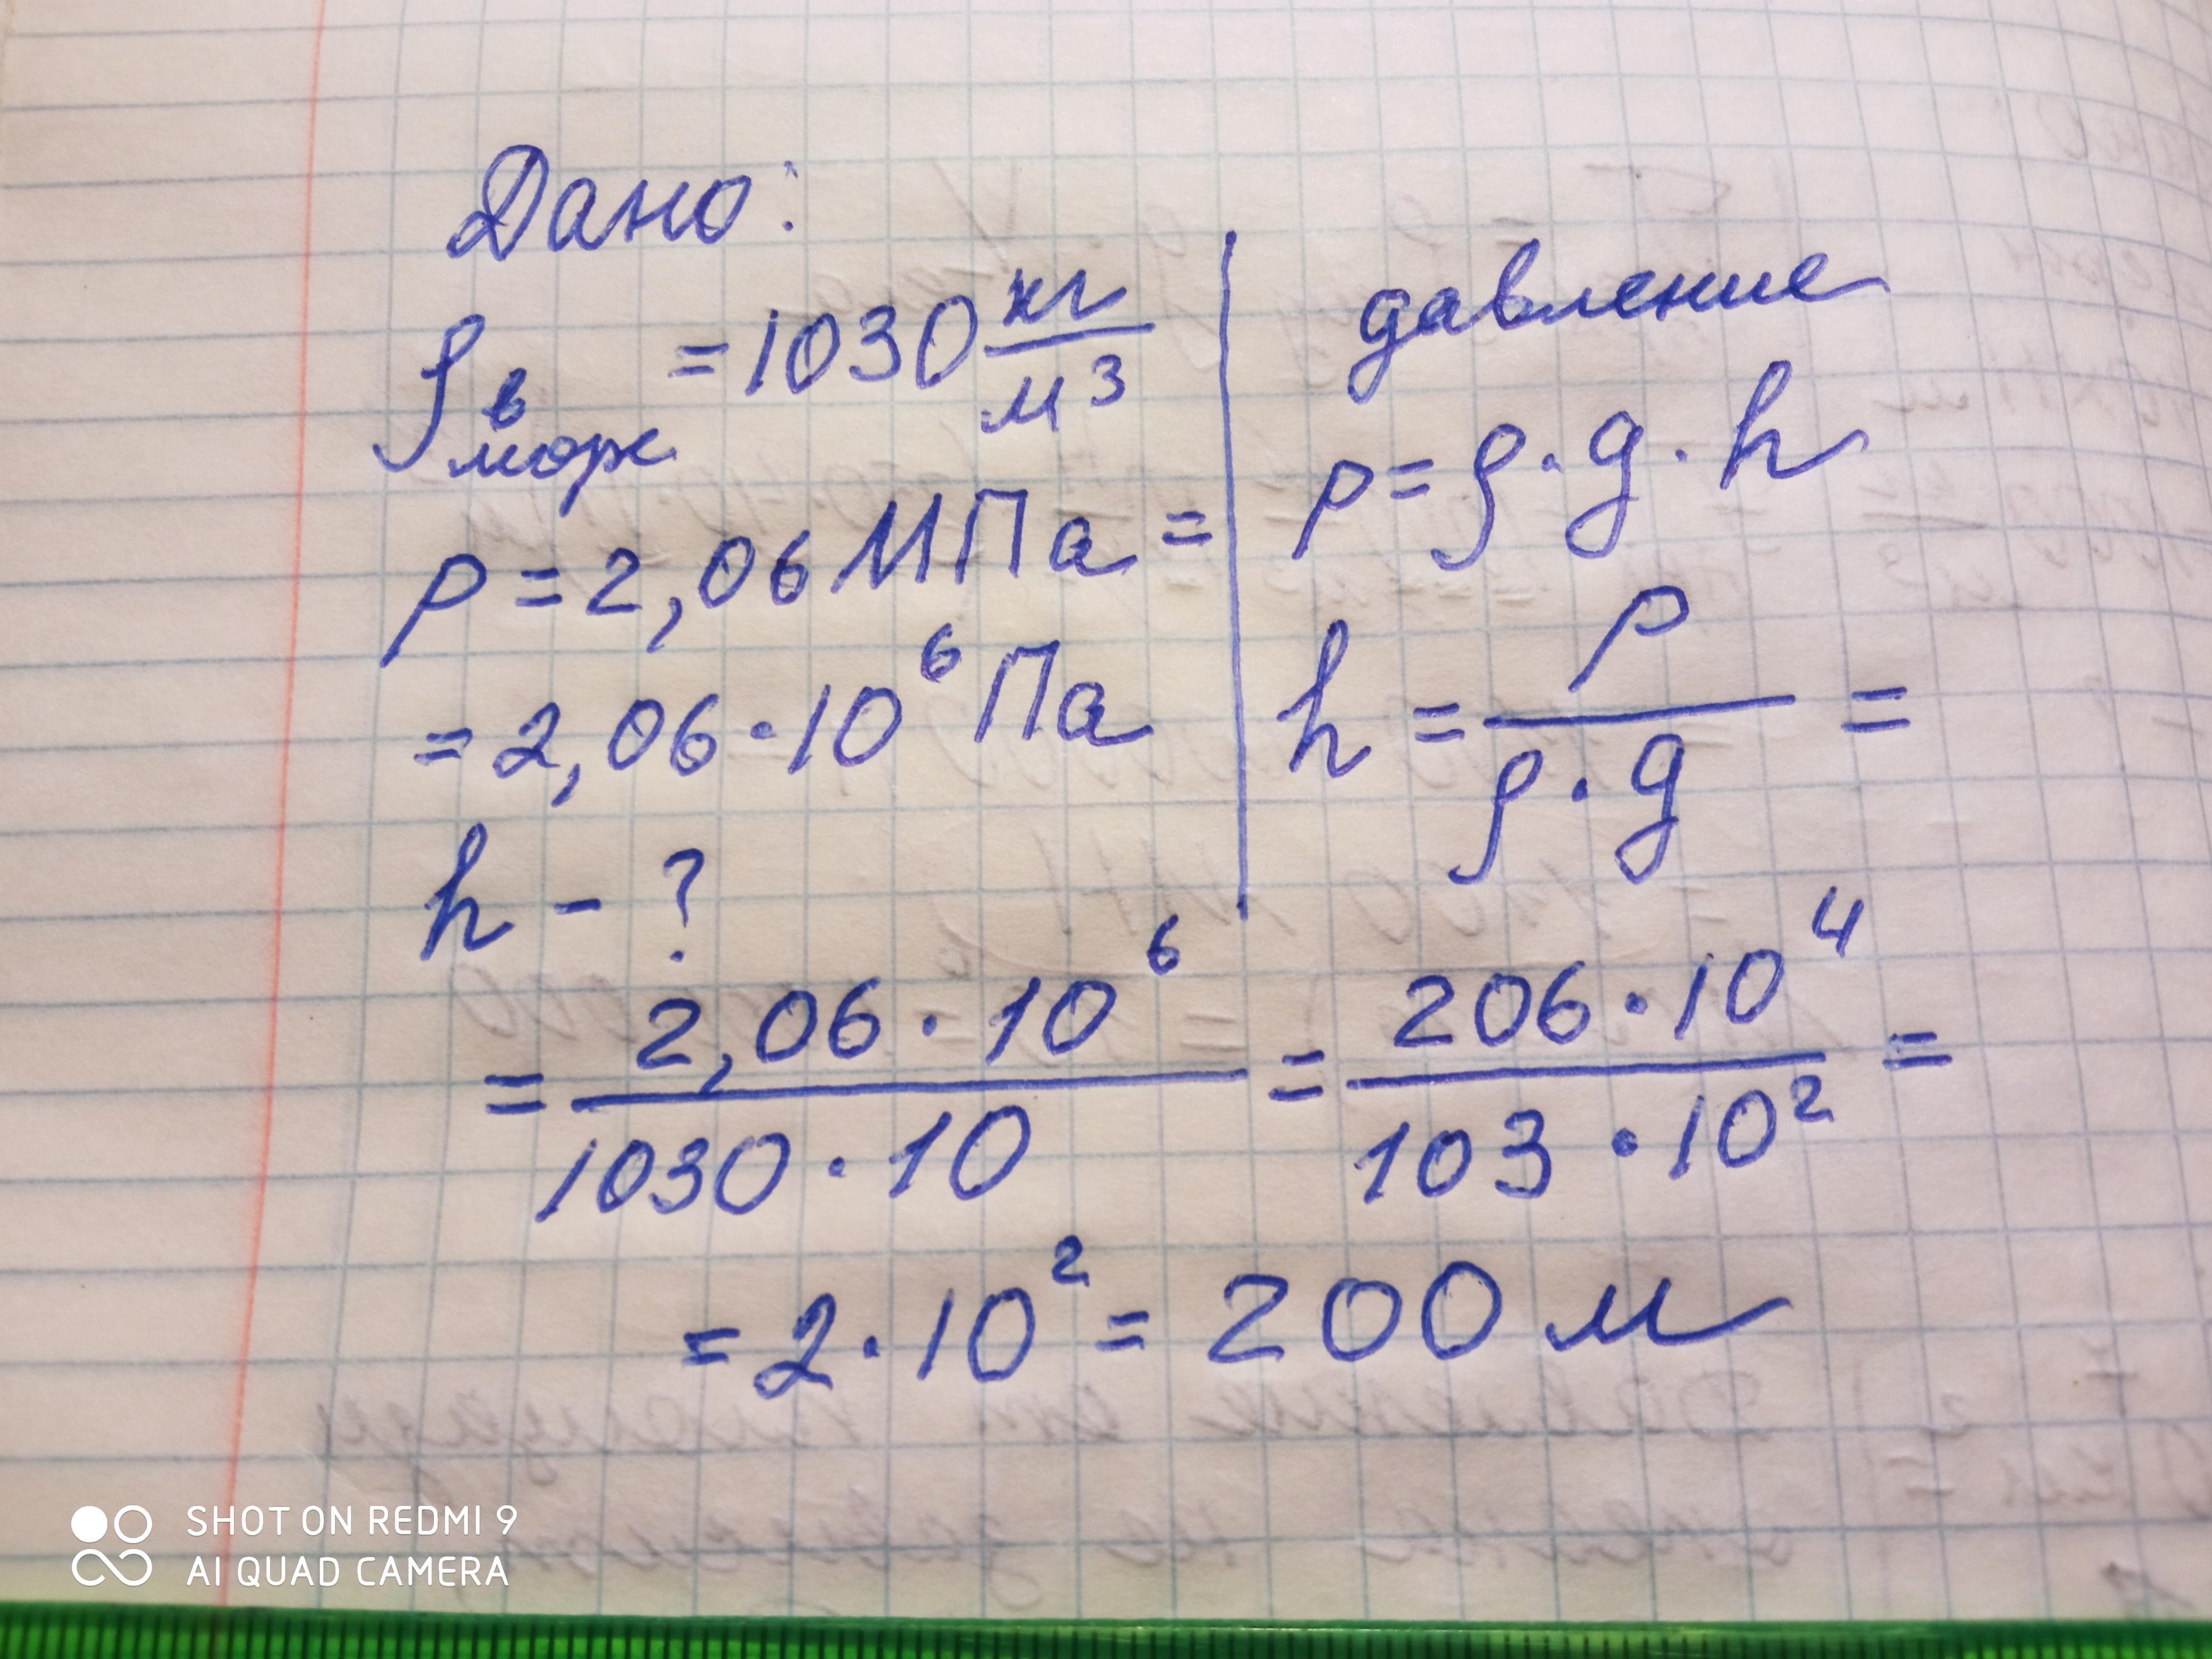 Дано:
ρ в морск = 1030 кг/м³
p = 2,06 МПа =
= 2,06 · 10⁶ Па
h - ?
давление
p = ρ · g · h
h = p / ρ · g =
= 2,06 · 10⁶ / 1030 · 10 = 206 · 10⁴ / 103 · 10² =
= 2 · 10² = 200 м
SHOT ON REDMI 9
AI QUAD CAMERA